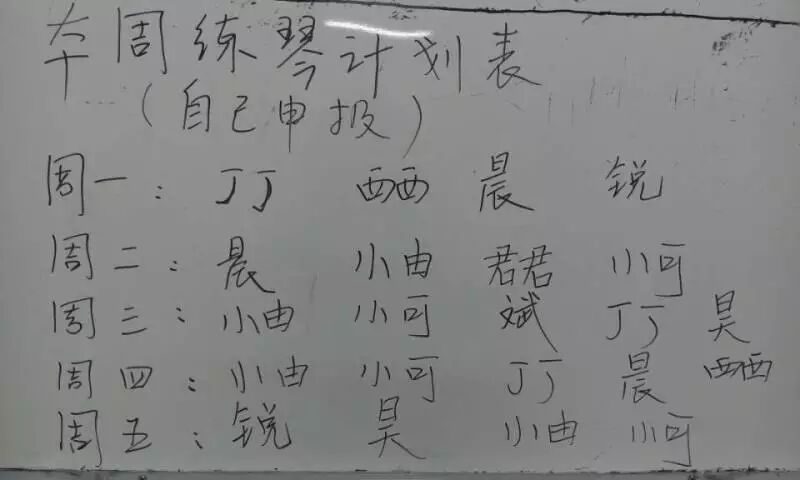 本周练琴计划表
（自己申报）
周一：丁丁 西西 晨 锐
周二：晨 小由 君君 小可
周三：小由 小可 斌 丁丁 昊
周四：小由 小可 丁丁 晨 西西
周五：锐 昊 小由 小可